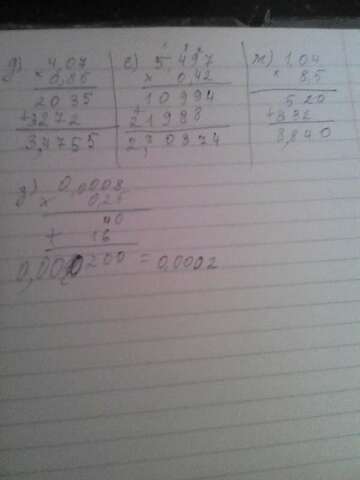 д) 4,07
× 0,85
2035
+3272
3,4755
е) 5,497
× 0,42
10994
+21988
2,30374
ж) 1,04
× 8,5
520
+832
8,840
0,0008
× 0,25
40
+ 16
0,000200 = 0,0002